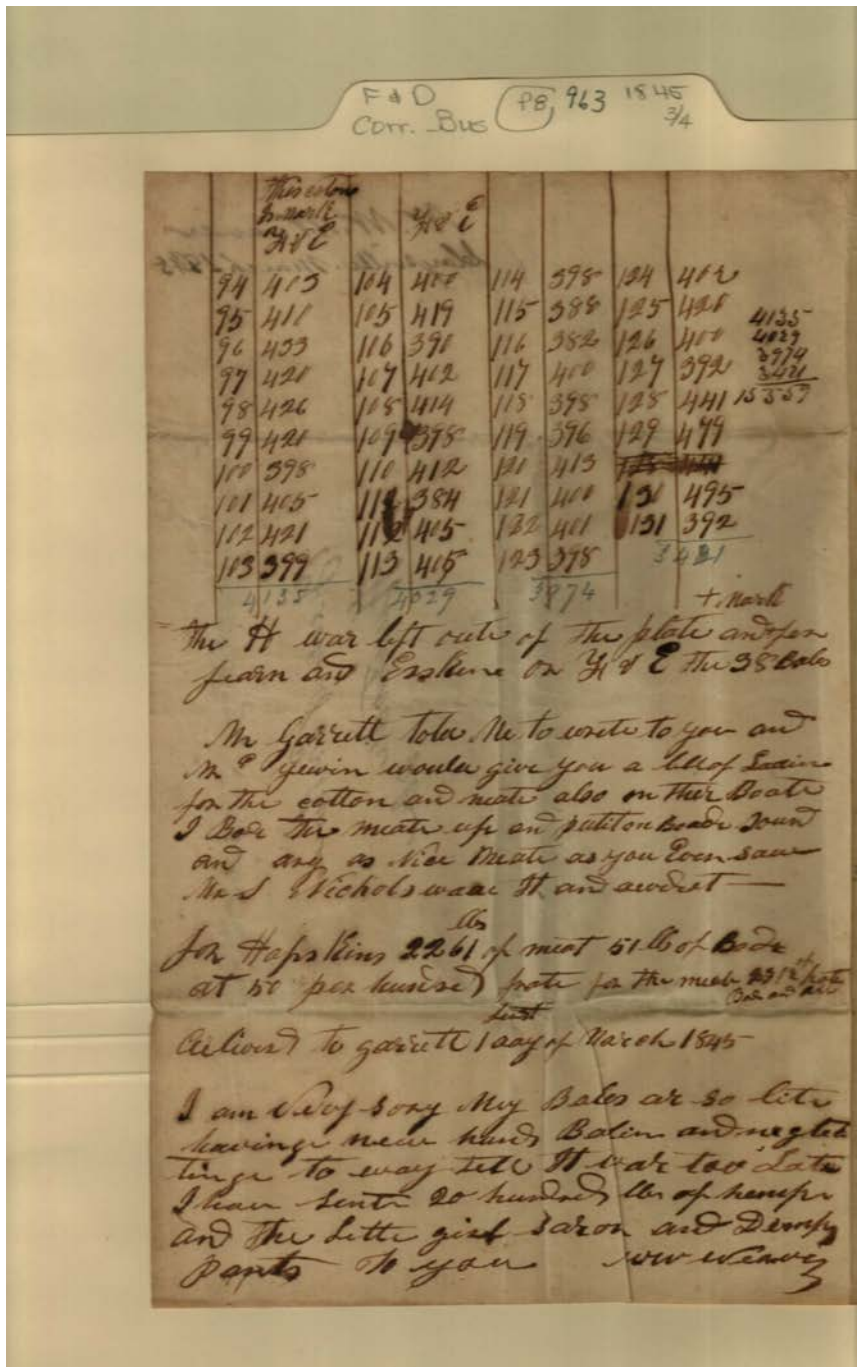 F & D P8, 963 1845
Corr. Bus 3/4
this cotton
is mark
F & E F & E
94 403 104 400 114 398 124 402
95 411 105 419 115 388 125 420 4135
96 433 106 390 116 382 126 400 4029
97 420 107 402 117 400 127 392 3974
98 426 108 414 118 398 128 441 3421
99 420 109 398 119 396 129 479 15559
100 398 110 412 120 413
101 405 111 384 121 400 130 495
102 421 112 405 122 401 131 392
103 399 113 405 123 398 3421
4135 4029 3974
+ mark
the H war left oute of the plate and for
fearn and Erskine on F & E the 38 Bales
Mr Garrett told Me to write to you and
would give you a bill of Ladin
for the cotton and meate also on ther Boate
I Boxe the meate up and put it on Boade Sound
and any as Nice Meate as you Ever saw
Mr S Nichols Waae It and
for Hopskins 2261 lbs of meat 51 lb of Bade
at 50 per hundred frate for the meate 2312 lb
Delivered to garrett 1 day of March 1845
I am very sory My Bales ar so lite
havinge new hands Balin and neglet
tinge to way till It war too Late
I have sente 20 hundred lbs of hempe
and the Little girl Saron and Demps
Pants to you W W Weaver